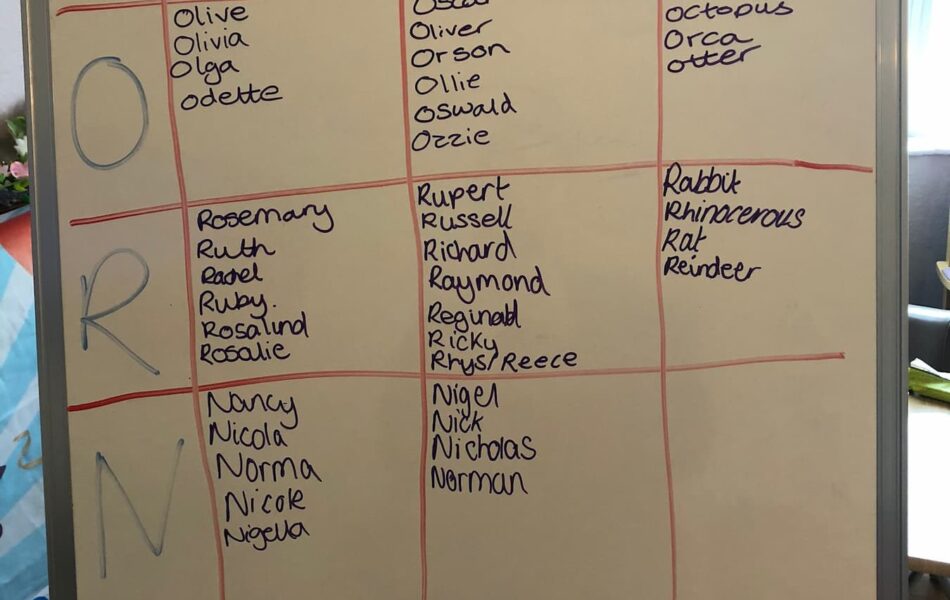 O
Olive
Olivia
Olga
Odette
Oscar
Oliver
Orson
Ollie
Oswald
Ozzie
Octopus
Orca
otter
R
Rosemary
Ruth
Rachel
Ruby.
Rosalind
Rosalie
Rupert
Russell
Richard
Raymond
Reginald
Ricky
Rhys/Reece
Rabbit
Rhinocerous
Rat
Reindeer
N
Nancy
Nicola
Norma
Nicole
Nigella
Nigel
Nick
Nicholas
Norman